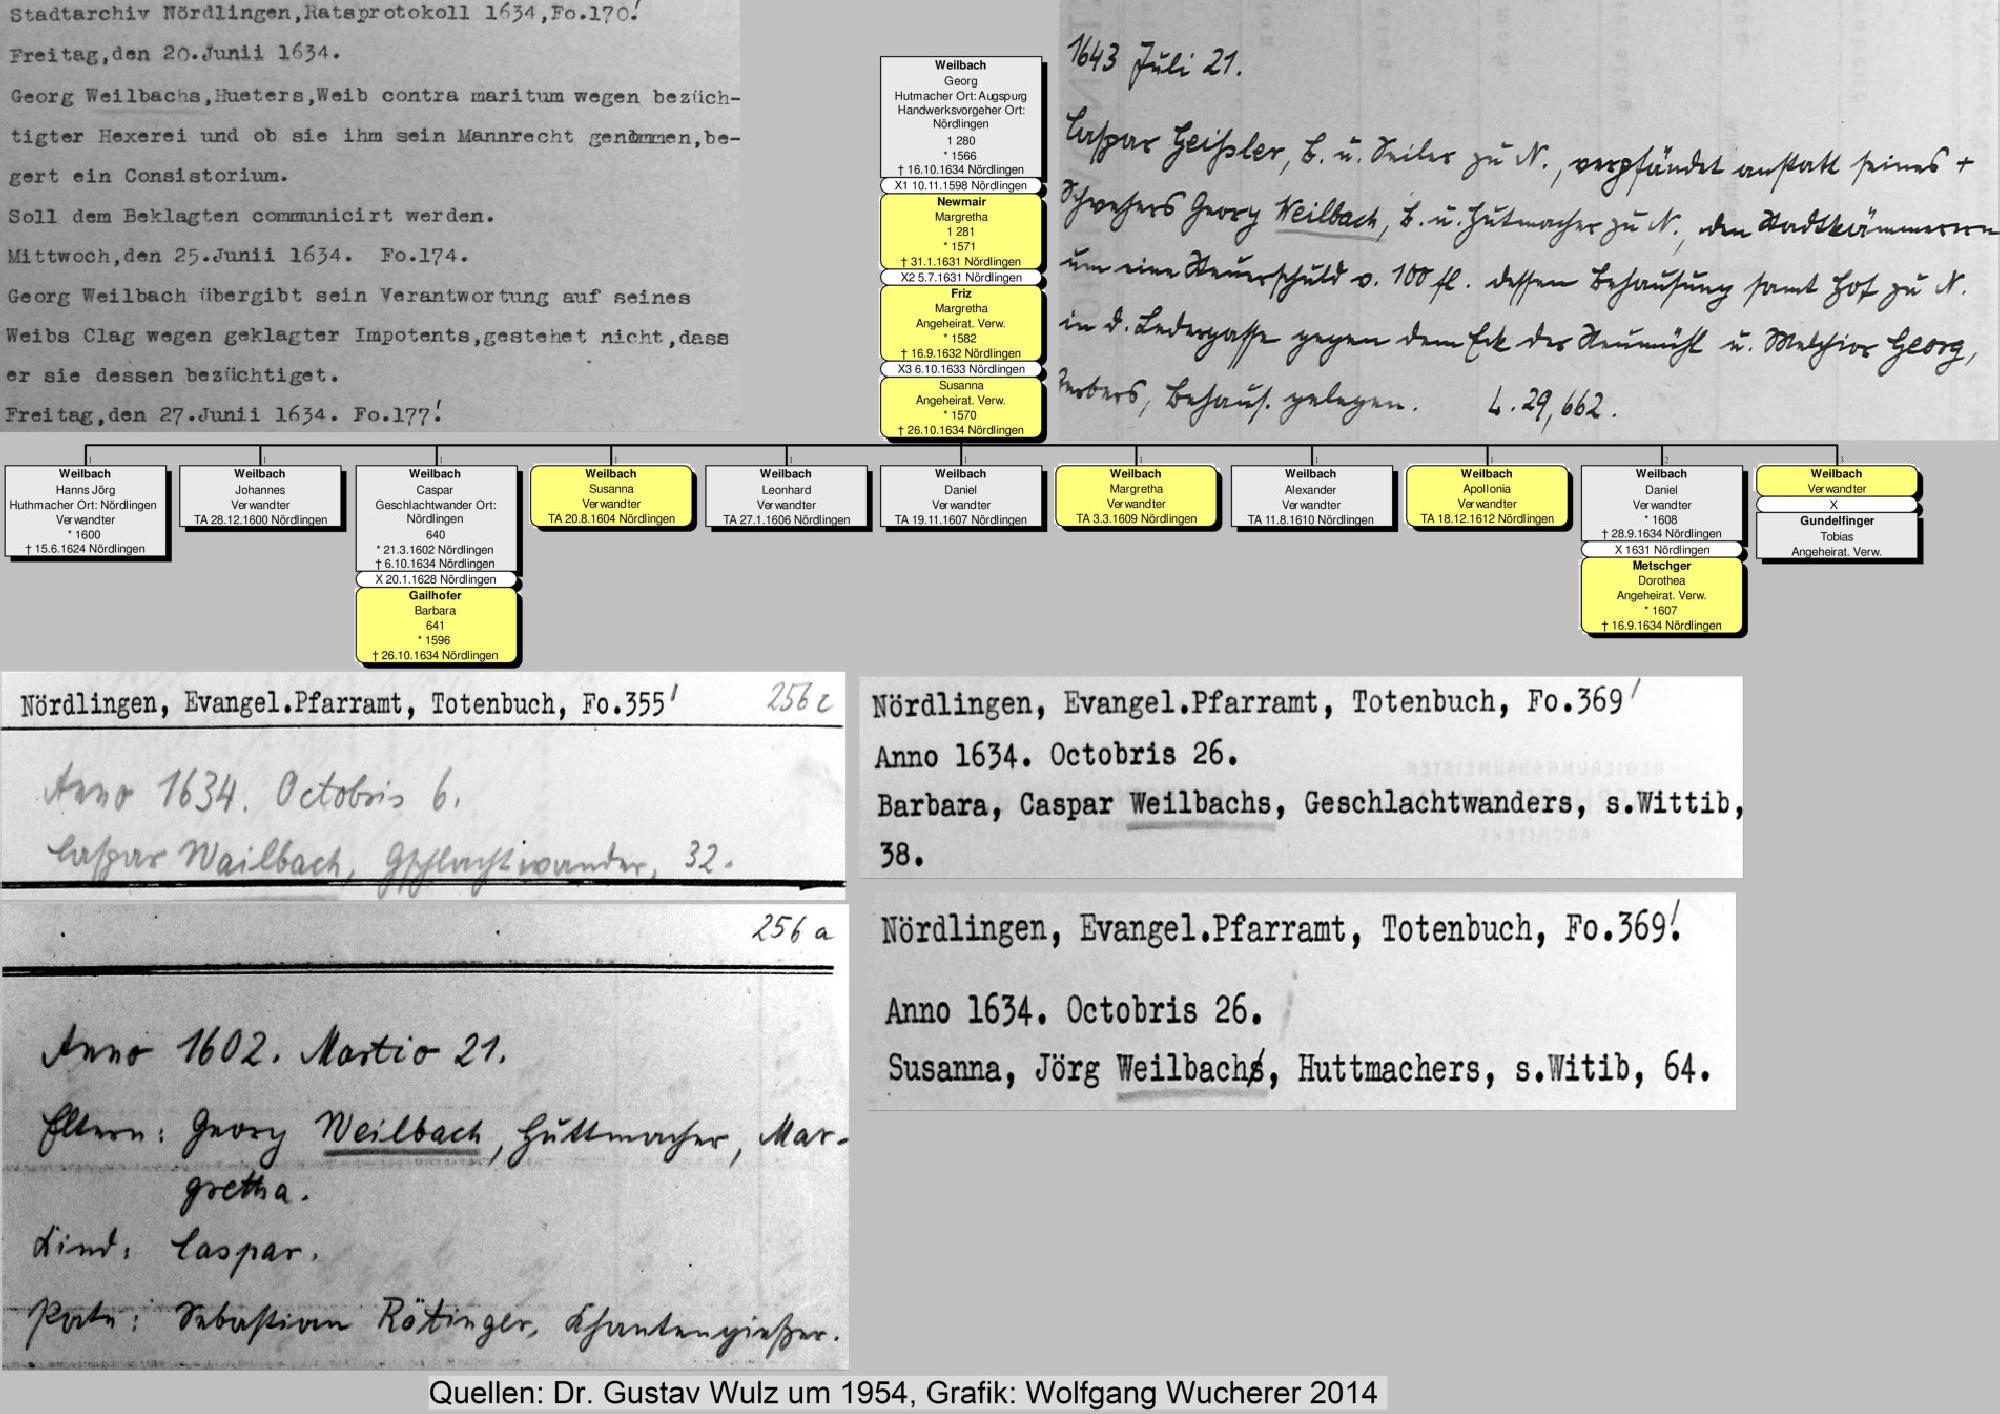 Stadtarchiv Nördlingen,Ratsprotokoll 1634,Fo.170!
Freitag,den 20.Junii 1634.
Georg Weilbachs,Hueters,Weib contra maritum wegen bezüch-
tigter Hexerei und ob sie ihm sein Mannrecht genommen,be-
gert ein Consistorium.
Soll dem Beklagten communicirt werden.
Mittwoch,den 25.Junii 1634. Fo.174.
Georg Weilbach übergibt sein Verantwortung auf seines
Weibs Clag wegen geklagter Impotents,gestehet nicht,dass
er sie dessen bezüchtiget.
Freitag,den 27.Junii 1634. Fo.177!
Weilbach
Georg
Hutmacher Ort: Augspurg
Handwerksvorgeher Ort:
Nördlingen
1 280
* 1566
† 16.10.1634 Nördlingen
X1 10.11.1598 Nördlingen
Newmair
Margretha
1 281
* 1571
† 31.1.1631 Nördlingen
X2 5.7.1631 Nördlingen
Friz
Margretha
Angeheirat. Verw.
* 1582
† 16.9.1632 Nördlingen
X3 6.10.1633 Nördlingen
Susanna
Angeheirat. Verw.
* 1570
† 26.10.1634 Nördlingen
1643 Juli 21.
Caspar Geißler, B. u. Seiler zu N., verpfändet anstatt seines +
Schwehers Georg Weilbach, B. u. Hutmacher zu N., den Stadtkämmerern
um eine Steuerschuld v. 100 fl. dessen Behausung samt Hof zu N.
in d. Ledergasse gegen dem Eck der Neumühl u. Melchior Georg,
Gerbers, Behaus. gelegen. L. 29,662.
Weilbach
Hanns Jörg
Huthmacher Ort: Nördlingen
Verwandter
* 1600
† 15.6.1624 Nördlingen
1
Weilbach
Johannes
Verwandter
TA 28.12.1600 Nördlingen
1
Weilbach
Caspar
Geschlachtwander Ort:
Nördlingen
640
* 21.3.1602 Nördlingen
† 6.10.1634 Nördlingen
X 20.1.1628 Nördlingen
Gailhofer
Barbara
641
* 1596
† 26.10.1634 Nördlingen
1
Weilbach
Susanna
Verwandter
TA 20.8.1604 Nördlingen
1
Weilbach
Leonhard
Verwandter
TA 27.1.1606 Nördlingen
1
Weilbach
Daniel
Verwandter
TA 19.11.1607 Nördlingen
1
Weilbach
Margretha
Verwandter
TA 3.3.1609 Nördlingen
1
Weilbach
Alexander
Verwandter
TA 11.8.1610 Nördlingen
1
Weilbach
Apollonia
Verwandter
TA 18.12.1612 Nördlingen
2
Weilbach
Daniel
Verwandter
* 1608
† 28.9.1634 Nördlingen
X 1631 Nördlingen
Metschger
Dorothea
Angeheirat. Verw.
* 1607
† 16.9.1634 Nördlingen
3
Weilbach
Verwandter
X
Gundelfinger
Tobias
Angeheirat. Verw.
Nördlingen, Evangel.Pfarramt, Totenbuch, Fo.355' 256 c
Anno 1634. Octobris 6.
Caspar Wailbach, Gschlachtwander, 32.
Nördlingen, Evangel.Pfarramt, Totenbuch, Fo.369'
Anno 1634. Octobris 26.
Barbara, Caspar Weilbachs, Geschlachtwanders, s.Wittib,
38.
256 a
Anno 1602. Martio 21.
Eltern: Georg Weilbach, Huttmacher, Mar-
gretha.
Kind: Caspar.
Pate: Sebastian Rötinger, Khantengießer.
Nördlingen, Evangel.Pfarramt, Totenbuch, Fo.369!
Anno 1634. Octobris 26.
Susanna, Jörg Weilbachs, Huttmachers, s.Witib, 64.
Quellen: Dr. Gustav Wulz um 1954, Grafik: Wolfgang Wucherer 2014